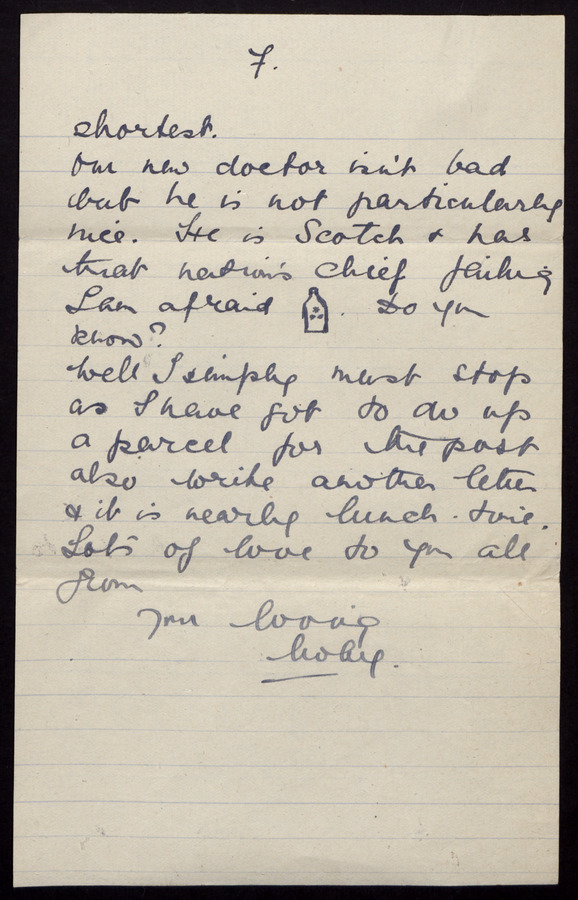 7.
shortest.
Our new doctor isn't bad
but he is not particularly
nice. He is Scotch & has
that nation's chief failing
I am afraid . Do you
know?
Well I simply must stop
as I have got to do up
a parcel for the post
also write another letter
& it is nearly lunch-time.
Lots of love to you all
from
Your loving